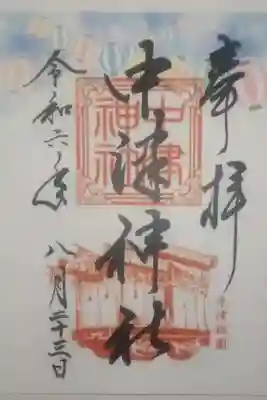 奉拝
中津神社
令和六年
八月二十三日
中津神社
中津祇園